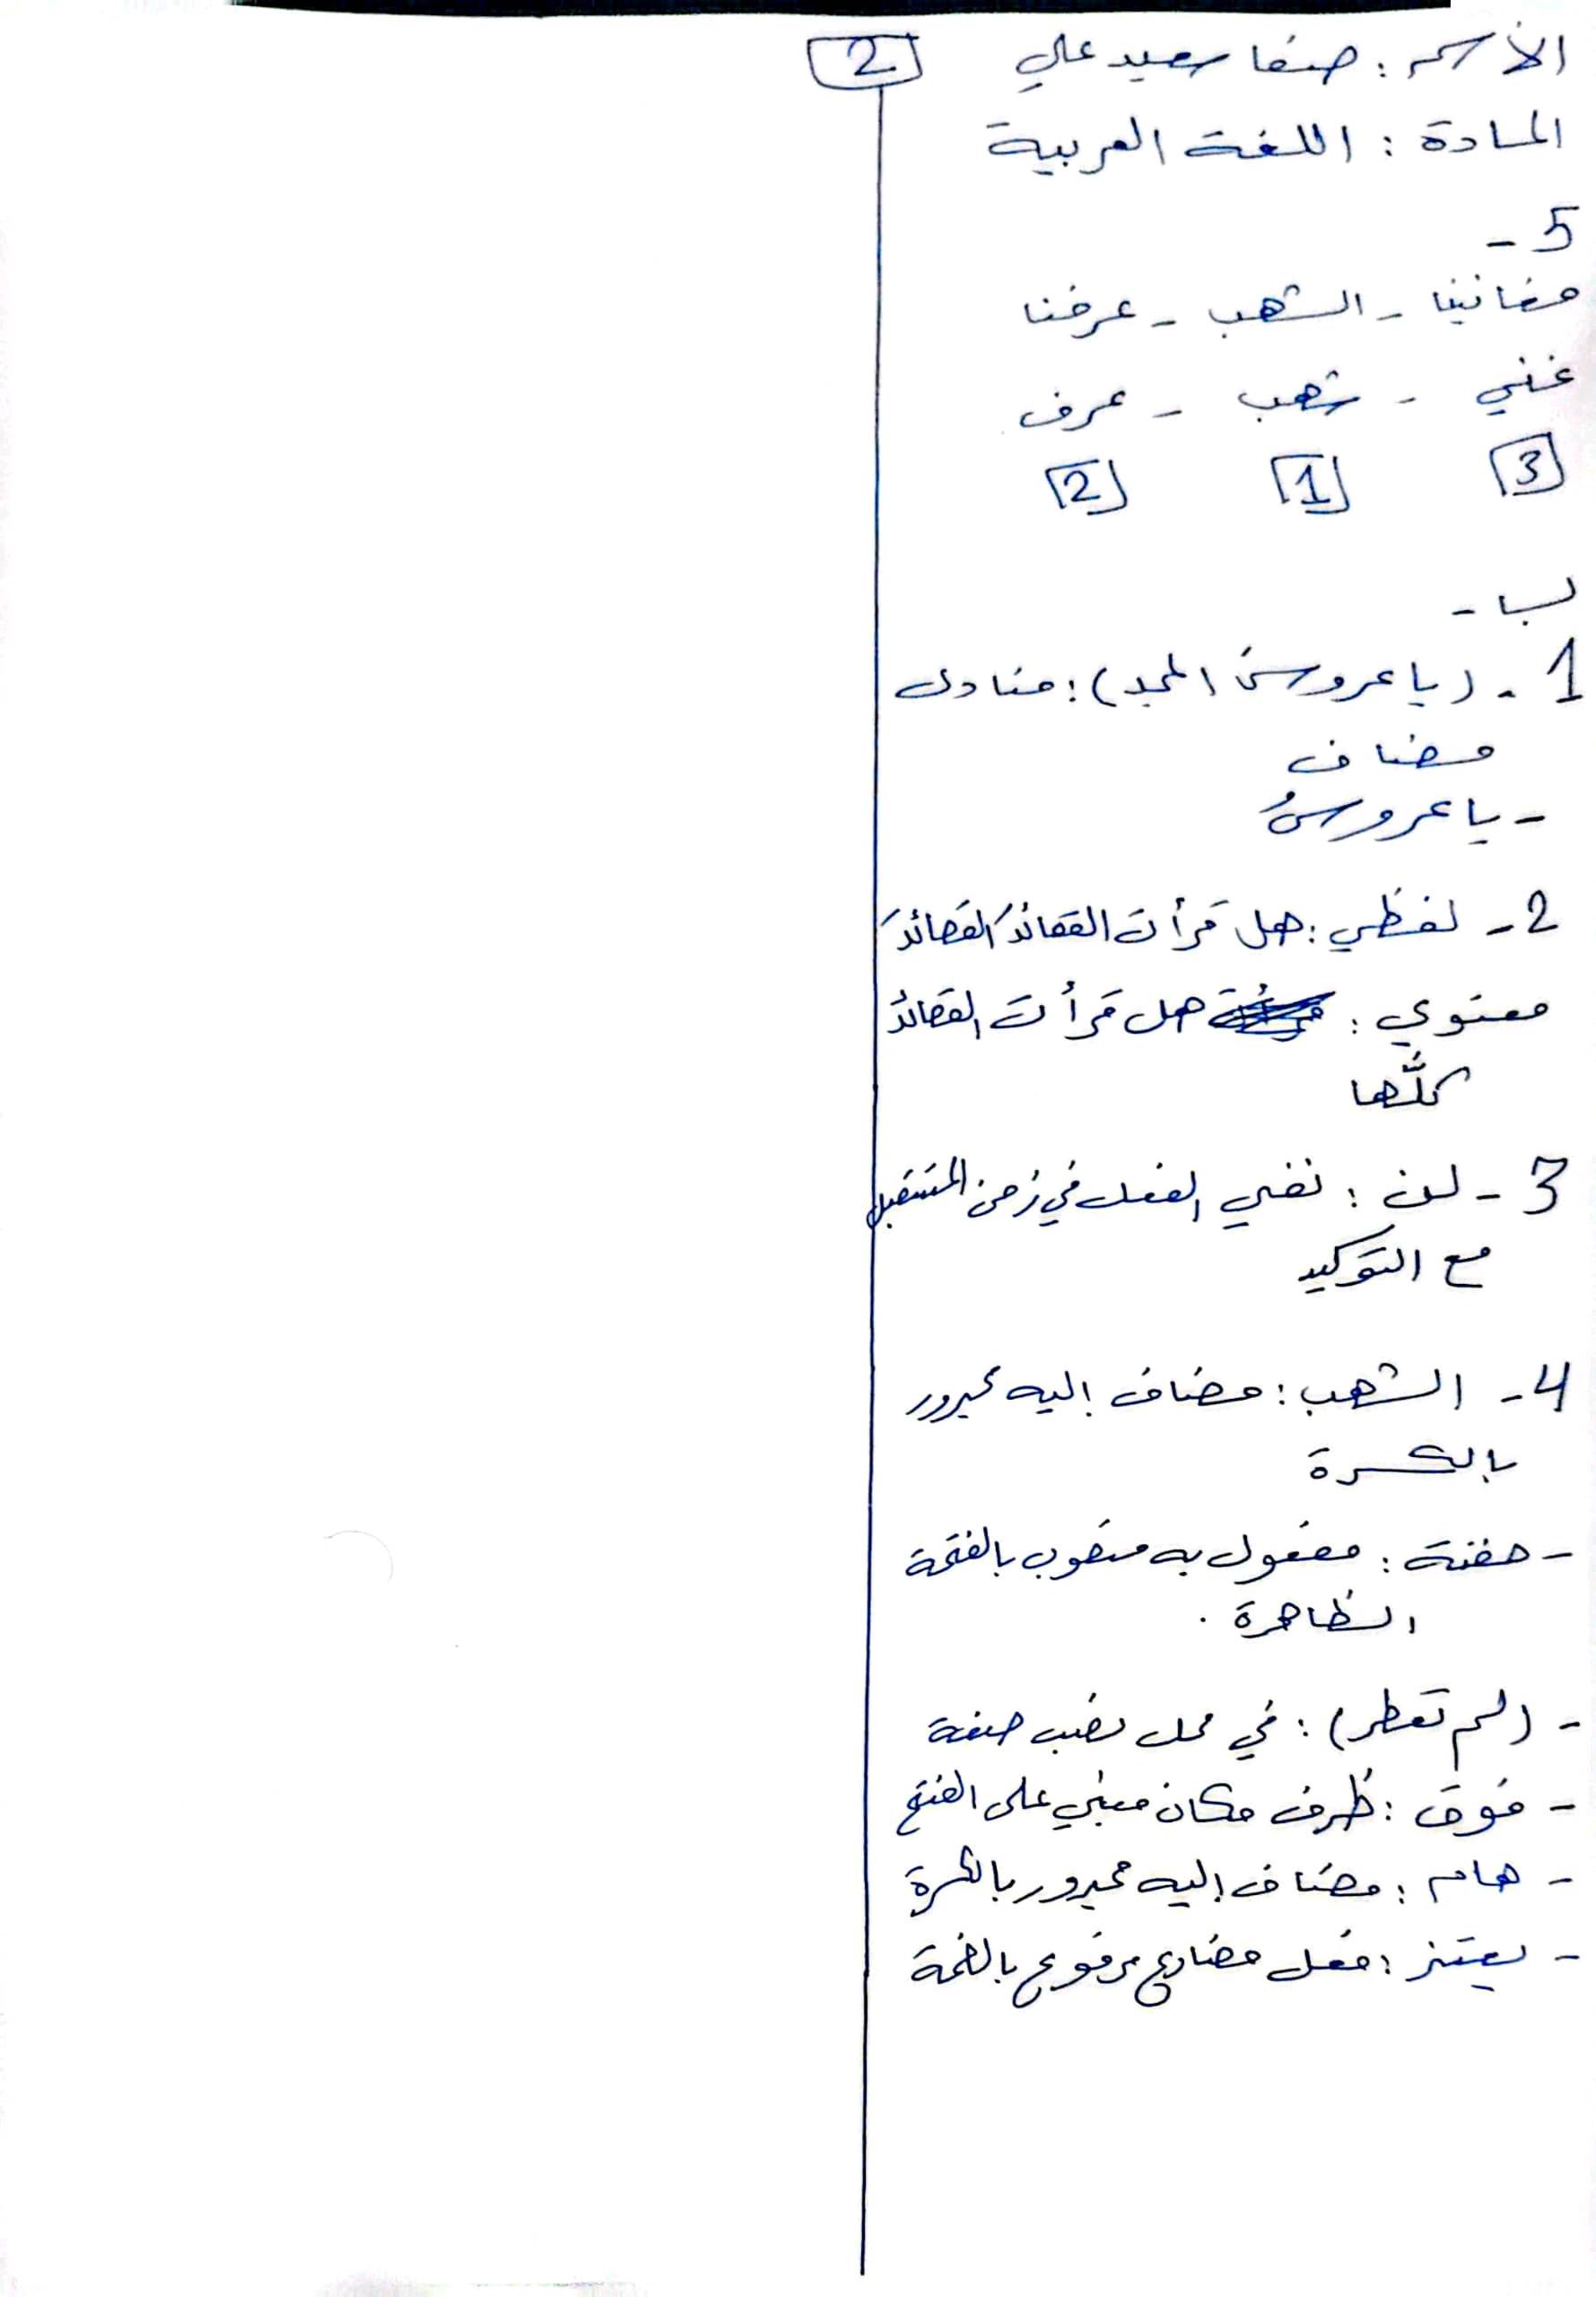 الأسم : صفا سعيد علي
2
المادة : اللغة العربية
5 -
مغانينا - الشهب - عرفنا
غني - شهب - عرف
3 1 2
ب -
1 - (يا عروسَ المجد) : منادى
مضاف
- يا عروسُ
2 - لفظي : هل قرأت القصائدَ القصائدَ
معنوي : هل قرأت القصائدَ
كلَّها
3 - لن : نفي الفعل في زمن المستقبل
مع التوكيد
4 - الشهب : مضاف إليه مجرور
بالكسرة
- حفنة : مفعول به منصوب بالفتحة
الظاهرة .
- (لم تعطر) : في محل نصب صفة
- فوق : ظرف مكان مبني على الفتح
- هام : مضاف إليه مجرور بالكسرة
- يعتز : فعل مضارع مرفوع بالضمة